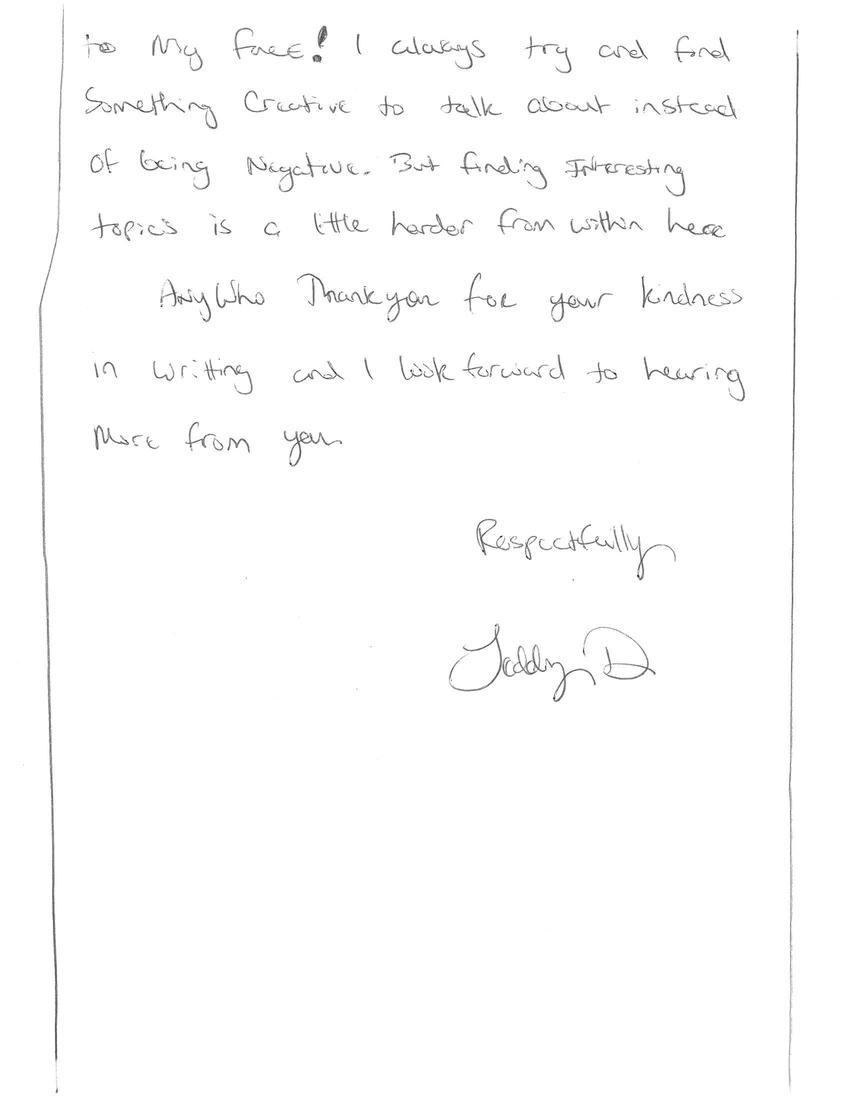 to My face! I always try and find
Something Creative to talk about instead
Of being Negative. But finding Interesting
topics is a little harder from within here
AnyWho Thankyou for your kindness
in writting and I look forward to hearing
More from you
Respectfully
Teddy D